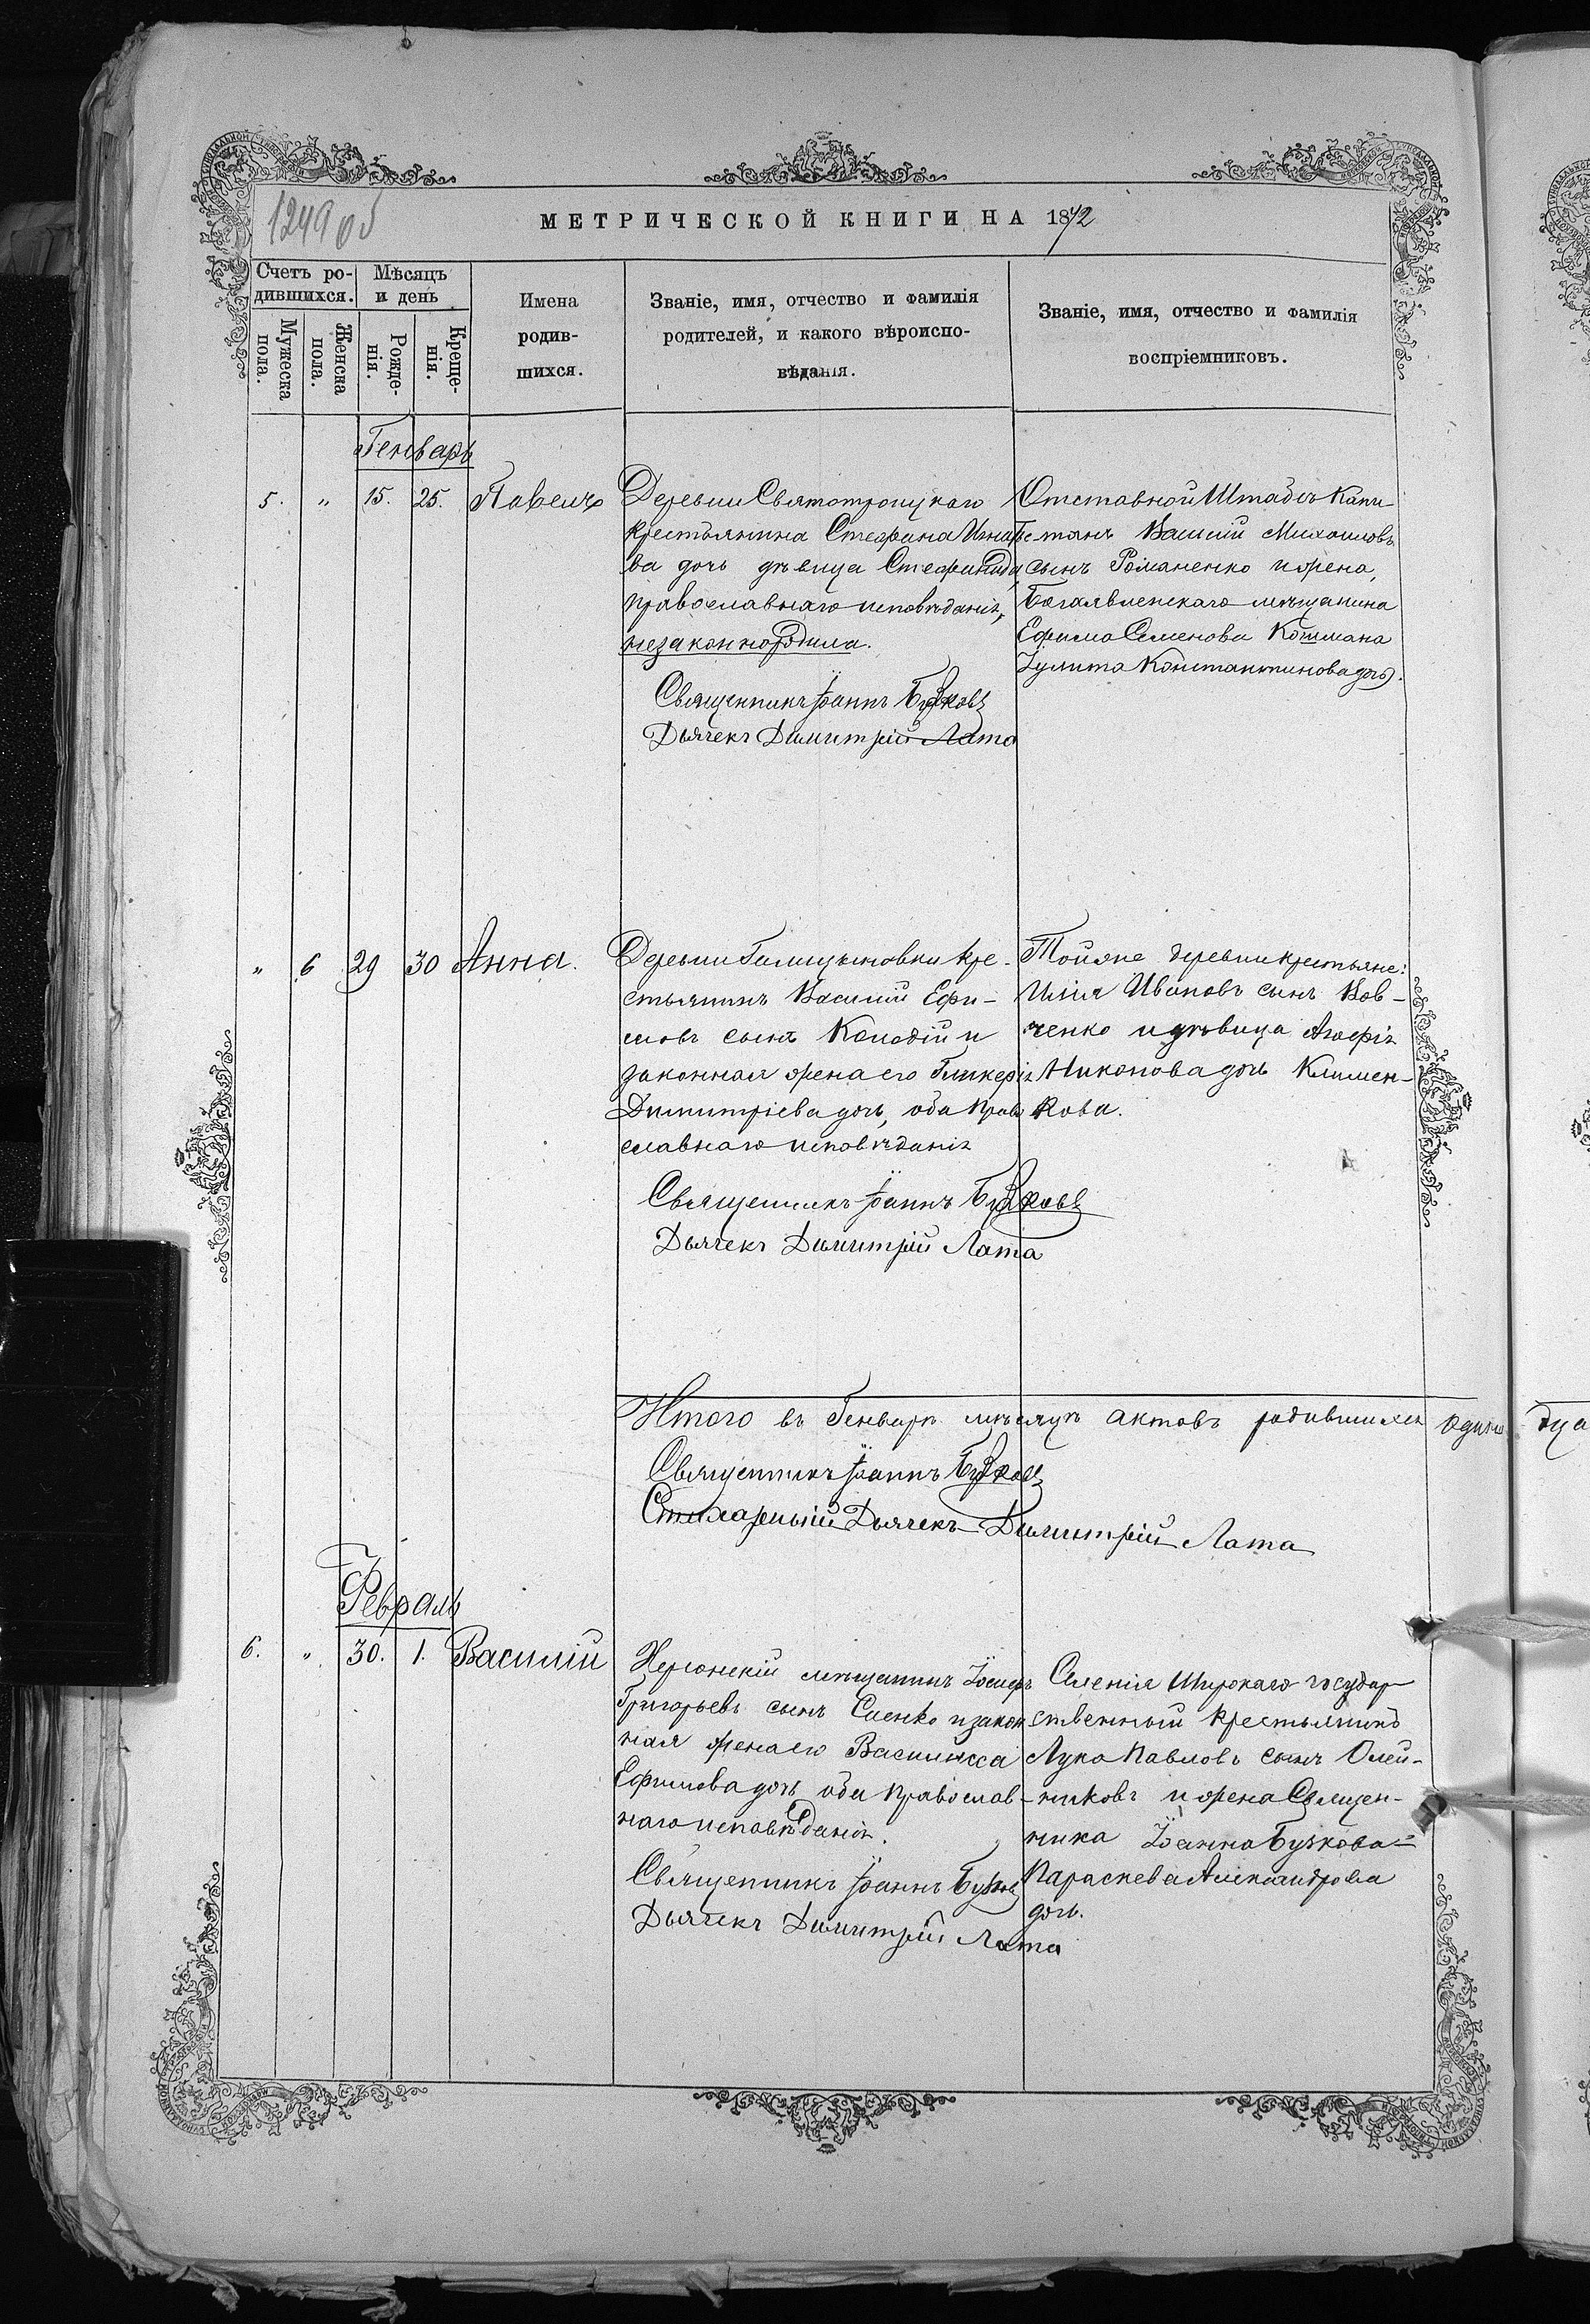 1249 об
МЕТРИЧЕСКОЙ КНИГИ НА 1872
Счетъ ро-
дившихся.
Мѣсяцъ
и день
Мужеска
пола.
Женска
пола.
Рожде-
нія.
Креще-
нія.
Имена
родив-
шихся.
Званіе, имя, отчество и фамилія
родителей, и какого вѣроиспо-
вѣданія.
Званіе, имя, отчество и фамилія
воспріемниковъ.
Генварь
5. " 15. 25. Павелъ
Деревни Святотроицкаго
крестьянина Стефана Игнать
ва дочь дѣвица Стефанида,
православнаго исповѣданія,
незаконно родила.
Священникъ Іоаннъ Бучковъ
Дьячекъ Димитрій Лата
Отставной Штабсъ Капи
танъ Василій Михаиловъ
сынъ Романенко и жена,
Богаявленскаго мѣщанина
Ефима Семенова Кошмана
Іулита Константинова дочь.
" 6 29 30 Анна.
Деревни Голицыновки кре-
стьянинъ Василій Ефи-
мовъ сынъ Колодій и
законная жена его Гликерія
Димитріева дочь, оба Право
славнаго исповѣданія
Священникъ Іоаннъ Бучковъ
Дьячекъ Димитрій Лата
Той же деревни крестьяне:
Илія Ивановъ сынъ Вов-
ченко и дѣвица Агафія
Никонова дочь Климен-
кова.
Итого въ Генварѣ мѣсяцѣ актовъ родившихся одина дца
Священникъ Іоаннъ Бучковъ
Стихарный Дьячекъ Димитрій Лата
Февраль
6. " 30. 1. Василій
Херсонскій мѣщанинъ Іосифъ
Григорьевъ сынъ Саенко и закон
ная жена его Василисса
Ефимова дочь оба Православ-
наго исповѣданія.
Священникъ Іоаннъ Бучковъ
Дьячекъ Димитрій Лата
Селенія Широкаго государ
ственный крестьянинъ
Лука Павловъ сынъ Олей-
никовъ и жена Священ-
ника Іоанна Бучкова
Параскева Александрова
дочь.